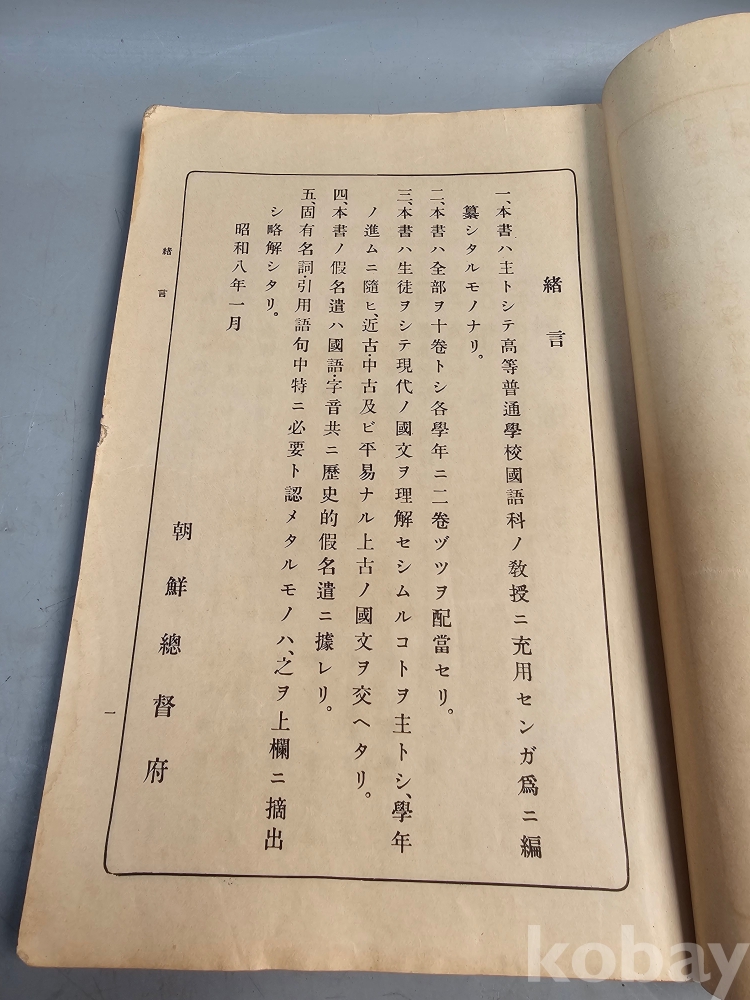 緒言
一、本書ハ主トシテ高等普通學校國語科ノ敎授ニ充用センガ爲ニ編
纂シタルモノナリ。
二、本書ハ全部ヲ十卷トシ各學年ニ二卷ヅツヲ配當セリ。
三、本書ハ生徒ヲシテ現代ノ國文ヲ理解セシムルコトヲ主トシ、學年
ノ進ムニ隨ヒ、近古・中古及ビ平易ナル上古ノ國文ヲ交ヘタリ。
四、本書ノ假名遣ハ國語・字音共ニ歷史的假名遣ニ據レリ。
五、固有名詞・引用語句中特ニ必要ト認メタルモノハ、之ヲ上欄ニ摘出
シ略解シタリ。
昭和八年一月
朝鮮總督府
緖言
一
kobay